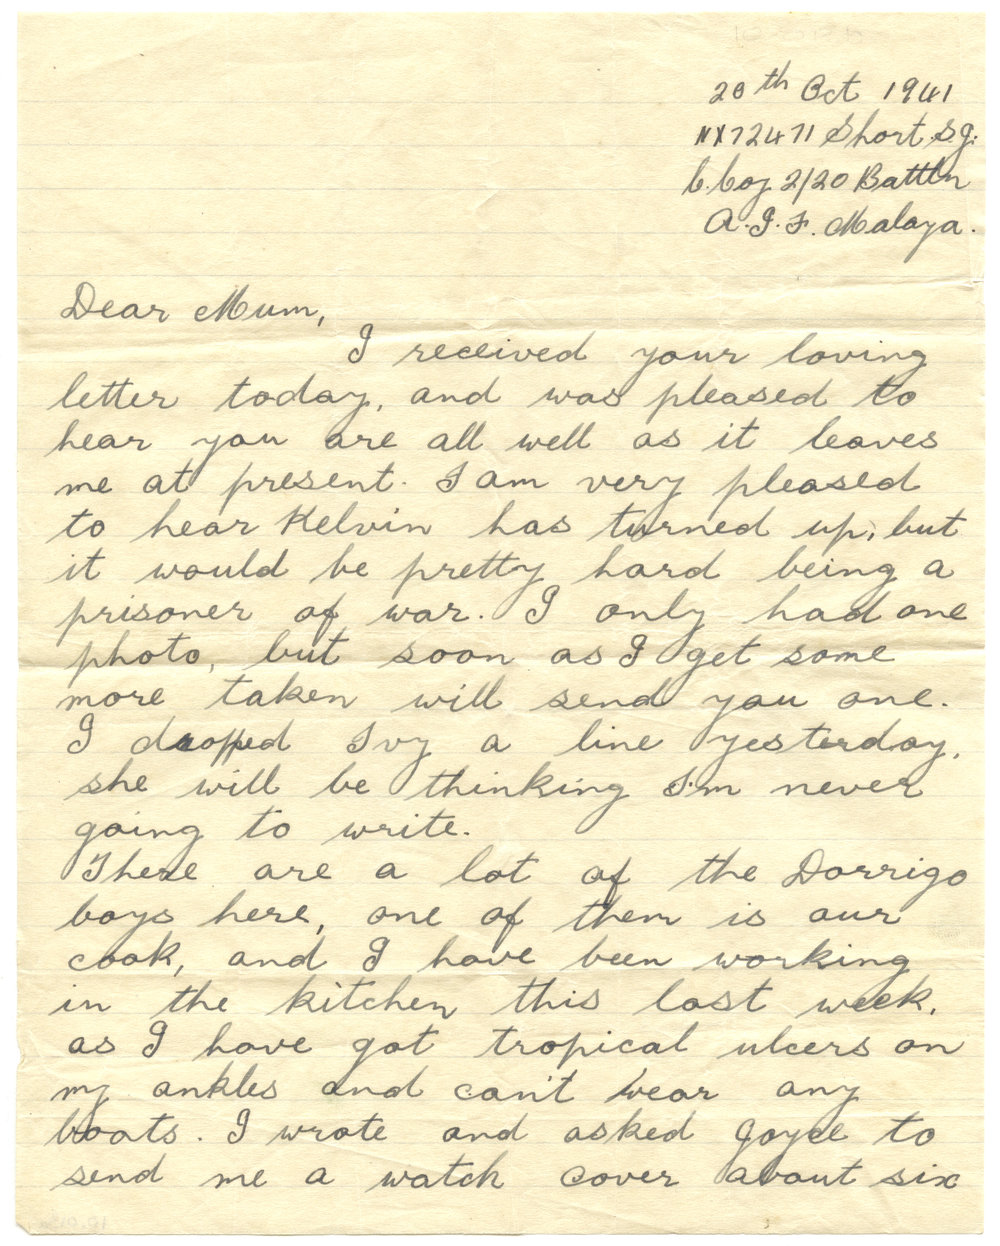 20th Oct 1941
NX72471 Short. S.G.
C. Coy 2/20 Battln
A.I.F. Malaya.
Dear Mum,
I received your loving
letter today, and was pleased to
hear you are all well as it leaves
me at present. I am very pleased
to hear Kelvin has turned up, but
it would be pretty hard being a
prisoner of war. I only had one
photo, but soon as I get some
more taken will send you one.
I dropped Ivy a line yesterday,
she will be thinking I'm never
going to write.
There are a lot of the Dorrigo
boys here, one of them is our
cook, and I have been working
in the kitchen this last week,
as I have got tropical ulcers on
my ankles and can't wear any
boots. I wrote and asked Joyce to
send me a watch cover about six